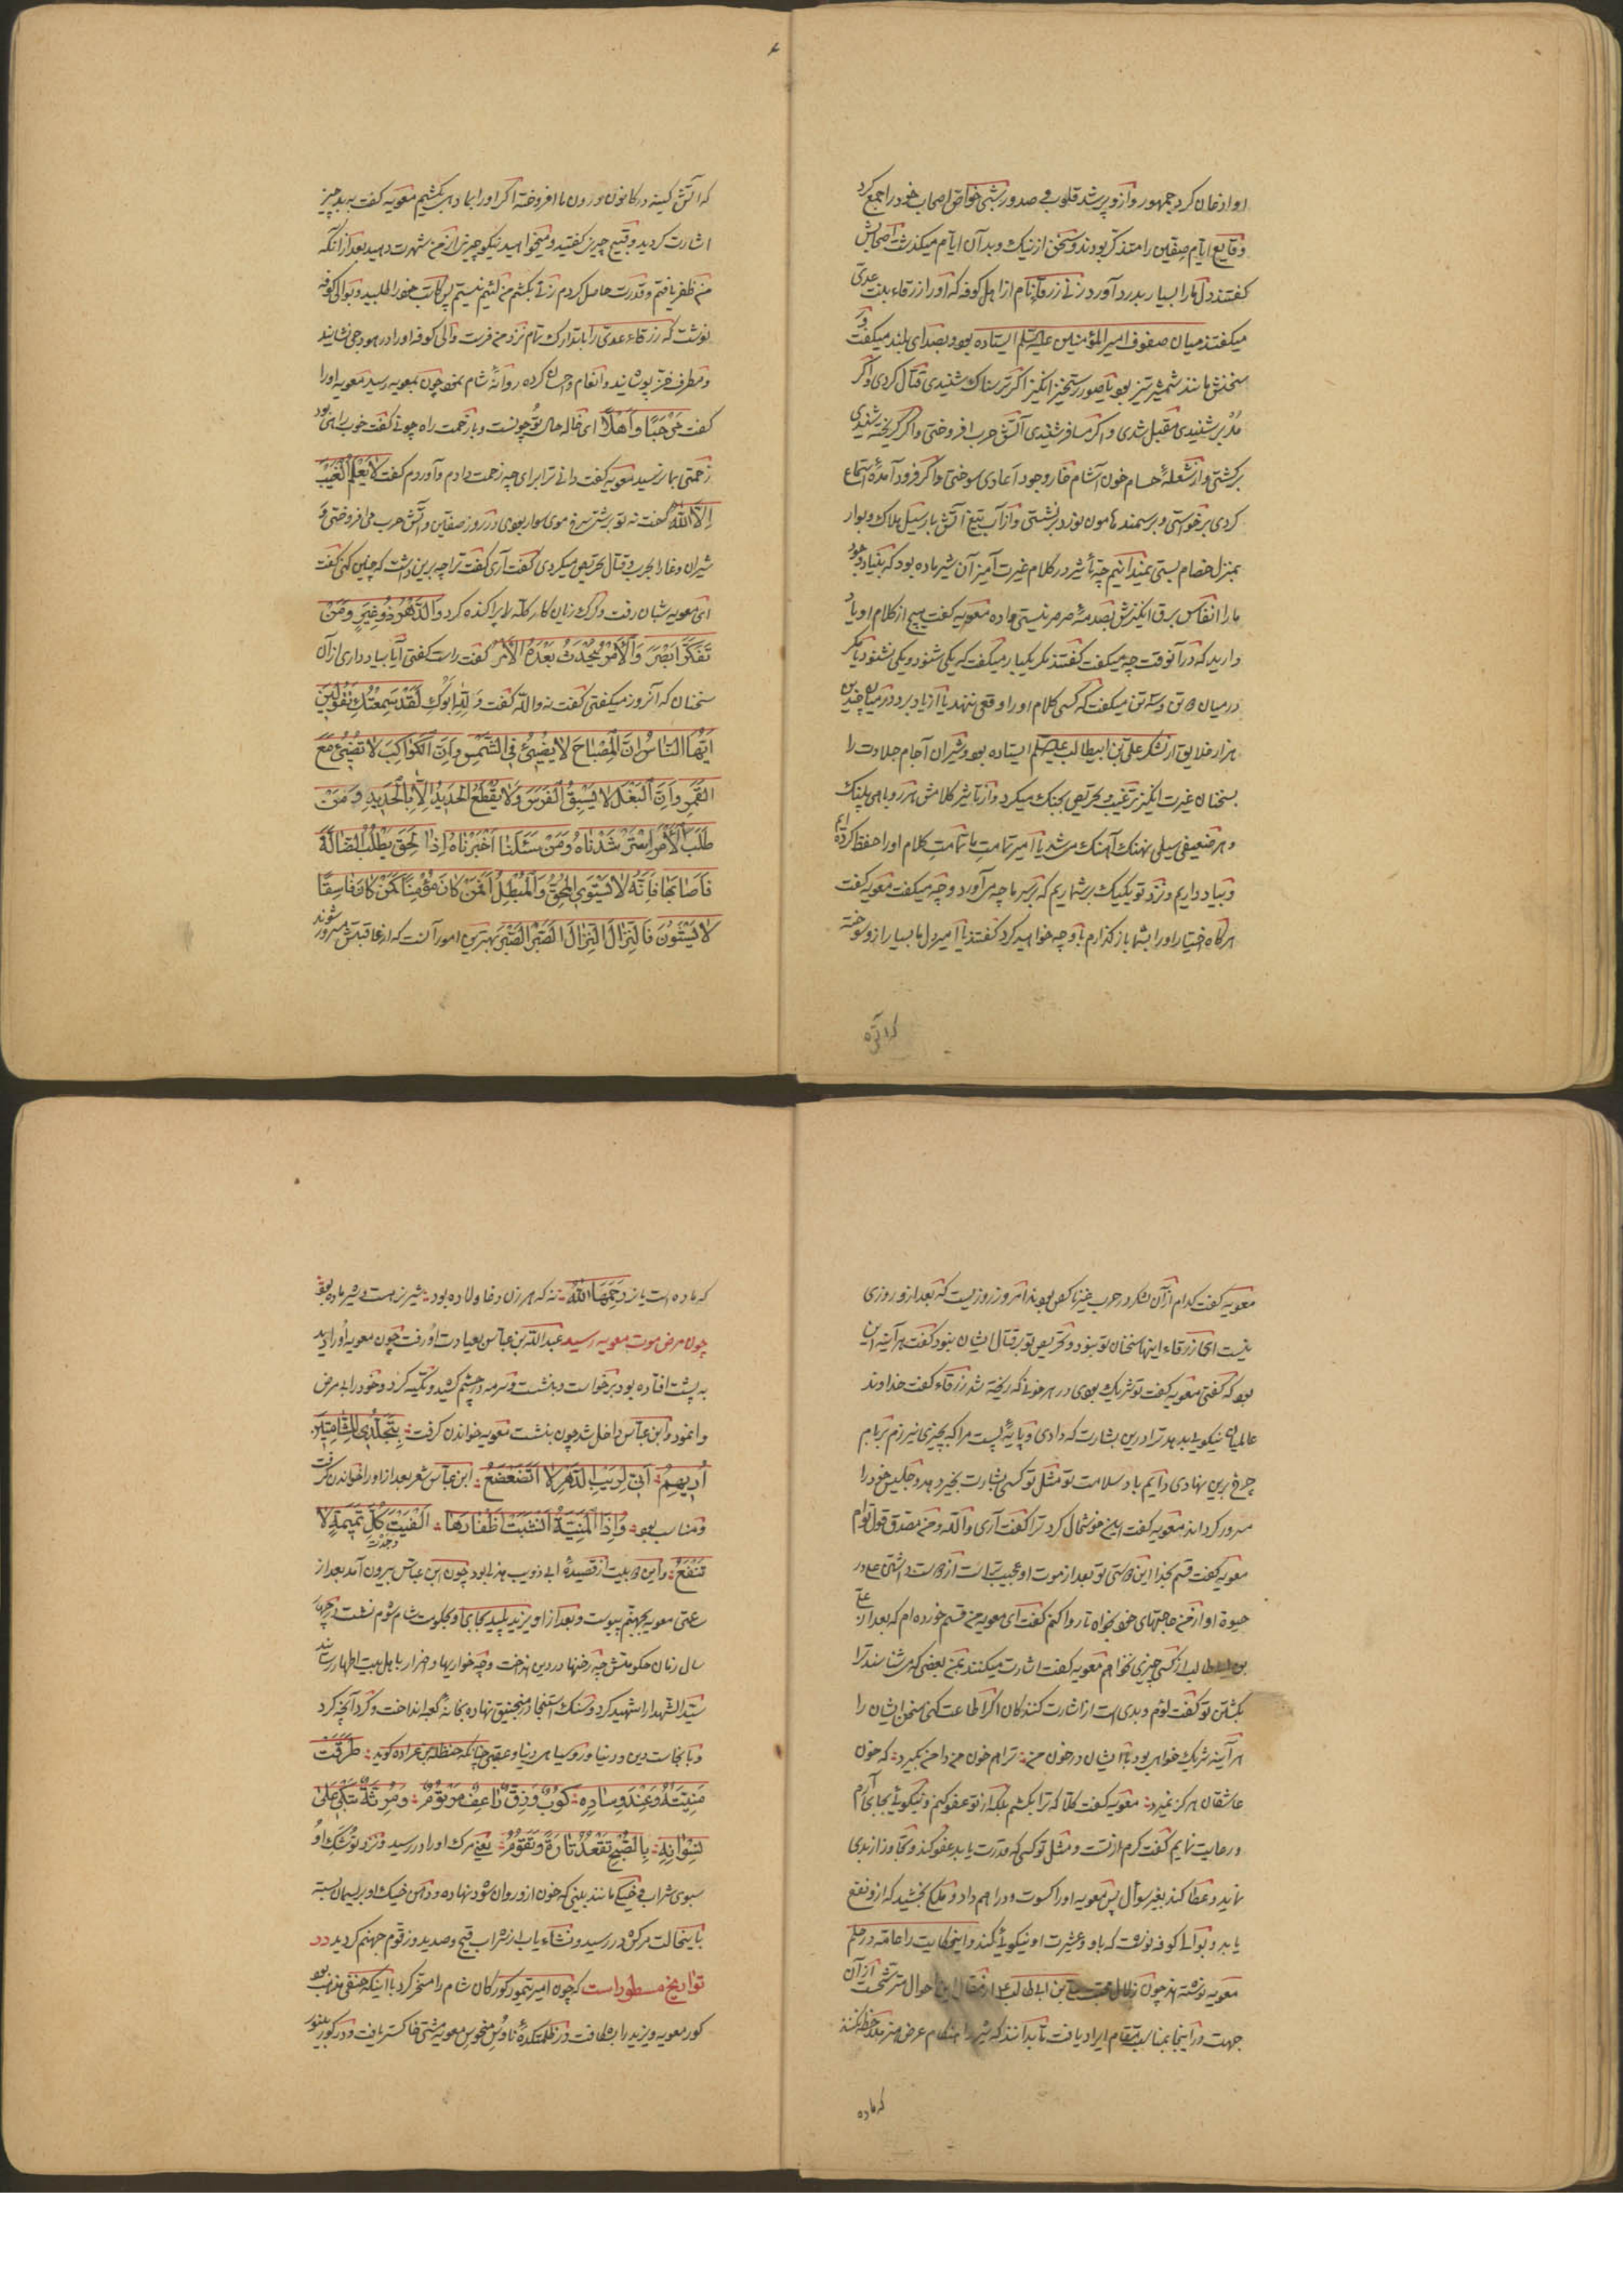 او اذعان کرد جمهور و ازو پر شد قلوب و صدور شبی خواص اصحاب خود را جمع کرد
وقایع ایام صفین را متذکر بودند و سخن از نیک و بد آن ایام میکذشت اصحابش
کفتند دل ما را بسیار بدرد آورد زنی زرقا نام از اهل کوفه که او را زرقاء بنت عدی
میکفتند میان صفوف امیر المؤمنین علیه السلم ایستاده بود و بصدای بلند میکفت و
سخنش مانند شمشیر تیز بود یا صور رستخیز انکیز اکر ترسناک شنیدی قتال کردی و اکر
مدبر شنیدی مقبل شدی و اکر مسافر شنیدی آتش حرب افروختی و اکر کریخته شنیدی
برکشتی و از شعلهٔ حسام خون آشام خار وجود اعادی سوختی و اکر فرود آمدهٔ استماع
کردی برخواستی و بر سمند هامون نورد برنشستی و از آب تیغ آتش بار سیل هلاک و بوار
بمنزل خصام بستی نمیدانیم چه تأثیر در کلام غیرت آمیز آن شیر ماده بود که بنیاد وجود
ما را انفاس برق انکیزش بصدمهٔ صرصر نیستی داده معویه کفت هیچ از کلام او یاد
دارید که در آنوقت چه میکفت کفتند مکر یکبار میکفت که یکی شنود و یکی نشنود یا مکر
در میان دو تن و سه تن میکفت که کسی کلام او را وقعی ننهد یا از یاد برد در میان چندین
هزار خلایق از لشکر علی بن ابیطالب علیه السلم ایستاده بود و شیران آجام جلادت را
بسخنان غیرت انکیز ترغیب و تحریص بجنک میکرد و از تأثیر کلامش هر روباهی پلنک
و هر ضعیفی سیلی نهنک آهنک می شد یا امیر تمامت ما تمامت کلام او را حفظ کرده ایم
و بیاد داریم و نزد تو یکیک بر شماریم که بر سر ما چه می آورد و چه میکفت معویه کفت
هرکاه اختیار او را بشما بازکذارم با او چه خواهید کرد کفتند یا امیر دل ما بسیار ازو سوخته
که آتش
که آتش کینه در کانون درون ما افروخته اکر او را بما دهی بکشیم معویه کفت به بد چیز
اشارت کردید و قبیح چیزی کفتید و میخواهید نیکو چیزی از من شهرت دهید بعد از آنکه
من ظفر یافتم و قدرت حاصل کردم زنی بکشم من لئیم نیستم پس کاتب خود را طلبید و بوالی کوفه
نوشت که زرقاء عدی را با تدارک تمام نزد من فرست والی کوفه او را در هودجی نشانید
و مطرف خز پوشانید و انعام و احسان کرده روانهٔ شام نمود چون بمعویه رسید معویه او را
کفت مَرْحَبًا وَ اَهْلًا ای خاله حال تو چونست و با زحمت راه چونی کفت خوب راهی بود
زحمتی بما نرسید معویه کفت دانی ترا برای چه زحمت دادم و آوردم کفت لَا یَعْلَمُ الْغَیْبَ
اِلَّا اللّٰهُ کفت نه تو بر شتر سرخ موی سوار بودی در روز صفین و آتش حرب می افروختی و
شیران وغا را بحرب و قتال تحریص میکردی کفت آری کفت ترا چه برین داشت که چنین کنی کفت
ای معویه شبان رفت و کرک زیان کار کله را پراکنده کرد وَ الدَّهْرُ ذُو غِیَرٍ وَ مَنْ
تَفَکَّرَ اَبْصَرَ وَ الْاَمْرُ یَحْدُثُ بَعْدَهُ الْاَمْرُ کفت راست کفتی آیا بیاد داری از آن
سخنان که آنروز میکفتی کفت نه والله کفت وَ لِلّٰهِ اَبُوکِ لَقَدْ سَمِعْتُکِ تَقُولِینَ
اَیُّهَا النَّاسُ اِنَّ الْمِصْبَاحَ لَا یُضِیئُ فِی الشَّمْسِ وَ اَنَّ الْکَوَاکِبَ لَا تُضِیئُ مَعَ
الْقَمَرِ وَ اَنَّ الْبَغْلَ لَا یَسْبِقُ الْفَرَسَ وَ لَا یَقْطَعُ الْحَدِیدَ اِلَّا الْحَدِیدُ وَ مَنْ
طَلَبَ الْاَمْرَ اِسْتَرْشَدْنَاهُ وَ مَنْ سَئَلَنَا اَخْبَرْنَاهُ اِذَا لِحَقٍّ یَطْلُبُ الضَّالَّةَ
فَاَصَابَهَا فَاِنَّهُ لَا یَسْتَوِی الْمُحِقُّ وَ الْمُبْطِلُ اَفَمَنْ کَانَ مُؤْمِنًا کَمَنْ کَانَ فَاسِقًا
لَا یَسْتَوُنَ فَالنِّزَالَ النِّزَالَ الصَّبْرَ الصَّبْرَ بهترین امور آنست که از عاقبتش مسرور شوند
معویه کفت کدام از آن لشکر در حرب غیر ناکص بودند امروز روزیست که بعد ازو روزی
نیست ای زرقاء اینها سخنان تو نبود و تحریص تو بر قتال ایشان نبود کفت هرآینه این
بود که کفتی معویه کفت تو شریک بودی در هر خونی که ریخته شد زرقاء کفت خداوند
عالمیان نیکوئی بدهد ترا درین بشارت که دادی و پایهٔ پست مرا که بچیزی نیرزم بر بام
چرخ برین نهادی دایم باد سلامت تو مثل تو کسی بشارت بخیر دهد و جلیس خود را
مسرور کرداند معویه کفت این خوشحال کرد ترا کفت آری والله و من مصدق قول توام
معویه کفت قسم بخدا این راستی تو بعد از موت او عجیب تر است از راست داشتی علی در
حیوة او از من حاجتهای خود بخواه تا روا کنم کفت ای معویه من قسم خورده ام که بعد از علی
بن ابیطالب از کسی چیزی نخواهم معویه کفت اشارت میکنند بمن بعضی که می شناسند ترا
بکشتن تو کفت لؤم و بدی است از اشارت کنندکان اکر اطاعت کنی سخن ایشان را
هرآینه شریک خواهی بود با ایشان در خون من ترا هم خون من دامن بکیرد که خون
عاشقان هرکز نمیرد معویه کفت کلا که ترا بکشیم بلکه از تو عفو کنیم و نیکوئی بجای آرم
و رعایت نمایم کفت کرم از تست و مثل تو کسی که قدرت یابد عفو کند و تجاوز از بدی
نماید و عطا کند بغیر سوأل پس معویه او را کسوت و دراهم داد و ملکی بخشید که ازو نفع
یابد و بوالی کوفه نوشت که با او و عشیرت او نیکوئی کند و اینحکایت را عامه در حلم
معویه نوشته اند چون بن ابی طالب از آن
جهت در اینجا بمناسب مقام ایراد یافت تا بدانند که
که ماده
که ماده است یا نر رَحِمَهَا اللّٰهُ نه که هر زن دغا و لاده بود شیر نر هست و شیر ماده بود
چون مرض موت بمعویه رسید عبدالله بن عباس بعیادت او رفت چون معویه او را دید
به پشت افتاده بود برخواست و بنشست و سرمه در چشم کشید و تکیه کرد و خود را بی مرض
وانمود و ابن عباس داخل شد چون بنشست معویه خواندن کرفت بِتَجَلُّدِی لِلشَّامِتِینَ
اُرِیهِمُ اَنِّی لِرَیْبِ الدَّهْرِ لَا اَتَضَعْضَعُ ابن عباس شعر بعد ازو را خواندن کرفت
و مناسب بود وَ اِذَا الْمَنِیَّةُ اَنْشَبَتْ اَظْفَارَهَا اَلْفَیْتَ کُلَّ تَمِیمَةٍ لَا
وجدت
تَنْفَعُ و این دو بیت از قصیدهٔ ابی ذویب هذلی بود چون ابن عباس بیرون آمد بعد از
ساعتی معویه بجهنم پیوست و بعد از او یزید پلید بجای او بحکومت شام شوم نشت
سال زمان حکومتش چه رخنها در دین انداخت و چه خواریها و اضرار با هل بیت اطهار رسانید
سید الشهدا را شهید کرد و سنک استنجا در منجنیق نهاده بخانهٔ کعبه انداخت و کرد آنچه کرد
و با نجاست دین و دنیا و رو سیاهی دنیا و عقبی چنانکه حنظله بن عراده کوید طَرَقَتْ
مَنِیَّتُهُ وَ عِنْدَ وِسَادِهِ کُوبٌ وَ زِقٌّ رَاعِفٌ مَرْثُومٌ وَ مُرِنَّةٌ تَبْکِی عَلَی
نَشْوَانِهِ بِالصُّبْحِ تَقْعُدُ تَارَةً وَ تَقُومُ یعنی مرک او را در رسید و نزد توشک او
سبوی شراب و خیکی مانند بینی که خون ازو روان شود نهاده و دهن خیک او بریسمان بسته
با ینحالت مرکش در رسید و نشاء یاب از شراب قیح و صدید و زقوم جهنم کردید در
تواریخ مسطور است که چون امیر تیمور کورکان شام را مسخر کرد با اینکه حنفی مذهب بود
کور معویه و یزید را بشکافت در ظلمتکدهٔ ناوس منحوس معویه مشتی خاکستر یافت و در کور یزید